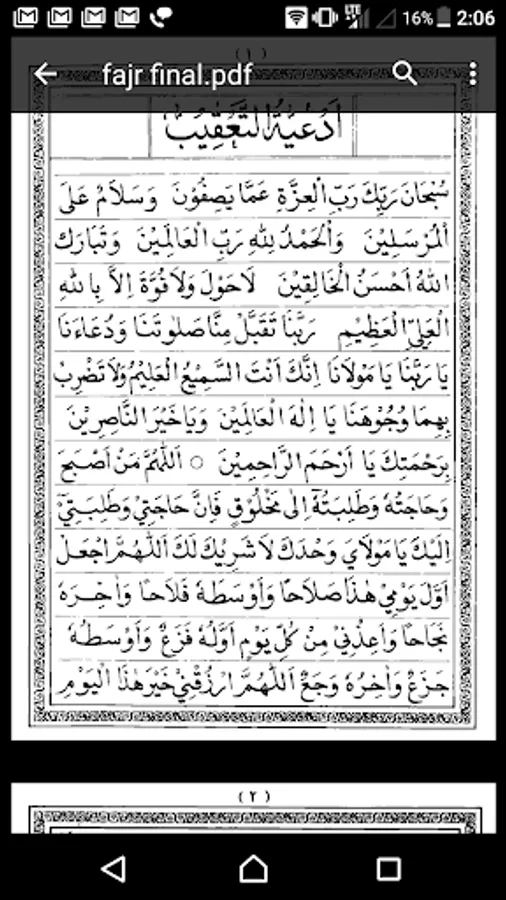 16% 2:06
(١)
fajr final.pdf
اَدْعِيَةُ التَّعْقِيْبْ
سُبْحَانَ رَبِّكَ رَبِّ الْعِزَّةِ عَمَّا يَصِفُوْنَ وَسَلَامٌ عَلَى
الْمُرْسَلِيْنَ وَالْحَمْدُ لِلّٰهِ رَبِّ الْعَالَمِيْنَ وَتَبَارَكَ
اللهُ اَحْسَنُ الْخَالِقِيْنَ لَاحَوْلَ وَلَاقُوَّةَ اِلَّا بِاللهِ
الْعَلِيِّ الْعَظِيْمِ رَبَّنَا تَقَبَّلْ مِنَّا صَلٰوتَنَا وَدُعَاءَنَا
يَا رَبَّنَا يَا مَوْلَانَا اِنَّكَ اَنْتَ السَّمِيْعُ الْعَلِيْمُ وَلَا تَضْرِبْ
بِهِمَا وُجُوْهَنَا يَا اِلٰهَ الْعَالَمِيْنَ وَيَاخَيْرَ النَّاصِرِيْنَ
بِرَحْمَتِكَ يَا اَرْحَمَ الرَّاحِمِيْنَ ○ اَللّٰهُمَّ مَنْ اَصْبَحَ
وَحَاجَتُهٗ وَطَلِبَتُهٗ اِلٰى مَخْلُوْقٍ فَاِنَّ حَاجَتِيْ وَطَلِبَتِيْ
اِلَيْكَ يَا مَوْلَايَ وَحْدَكَ لَا شَرِيْكَ لَكَ اَللّٰهُمَّ اجْعَلْ
اَوَّلَ يَوْمِيْ هٰذَا صَلَاحًا وَاَوْسَطَهٗ فَلَاحًا وَاٰخِرَهٗ
نَجَاحًا وَاَعِذْنِيْ مِنْ كُلِّ يَوْمٍ اَوَّلُهٗ فَزَعٌ وَاَوْسَطُهٗ
جَزَعٌ وَاٰخِرُهٗ وَجَعٌ اَللّٰهُمَّ ارْزُقْنِيْ خَيْرَ هٰذَا الْيَوْمِ
(٢)